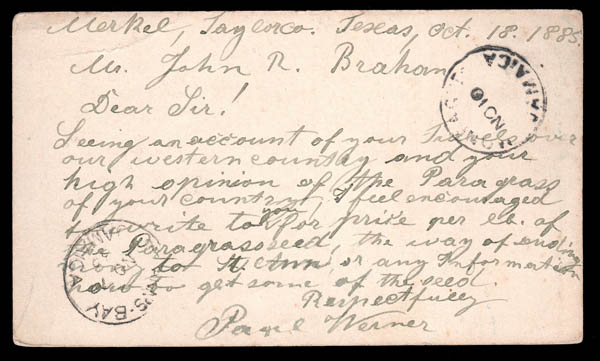 Merkel, Taylor co. Texas, Oct. 18. 1885.
Mr. John R. Braham
Dear Sir!
Seeing an account of your Travels over
our western country and your
high opinion of the Paragrass
of your country, I feel encouraged
to write to you for prise per lb. of
Paragrass seed, the way of sending
money to St. Ann, or any Information
how to get some of the seed.
Respectfully
Paul Werner
JAMAICA
S-BAY
JAMAICA